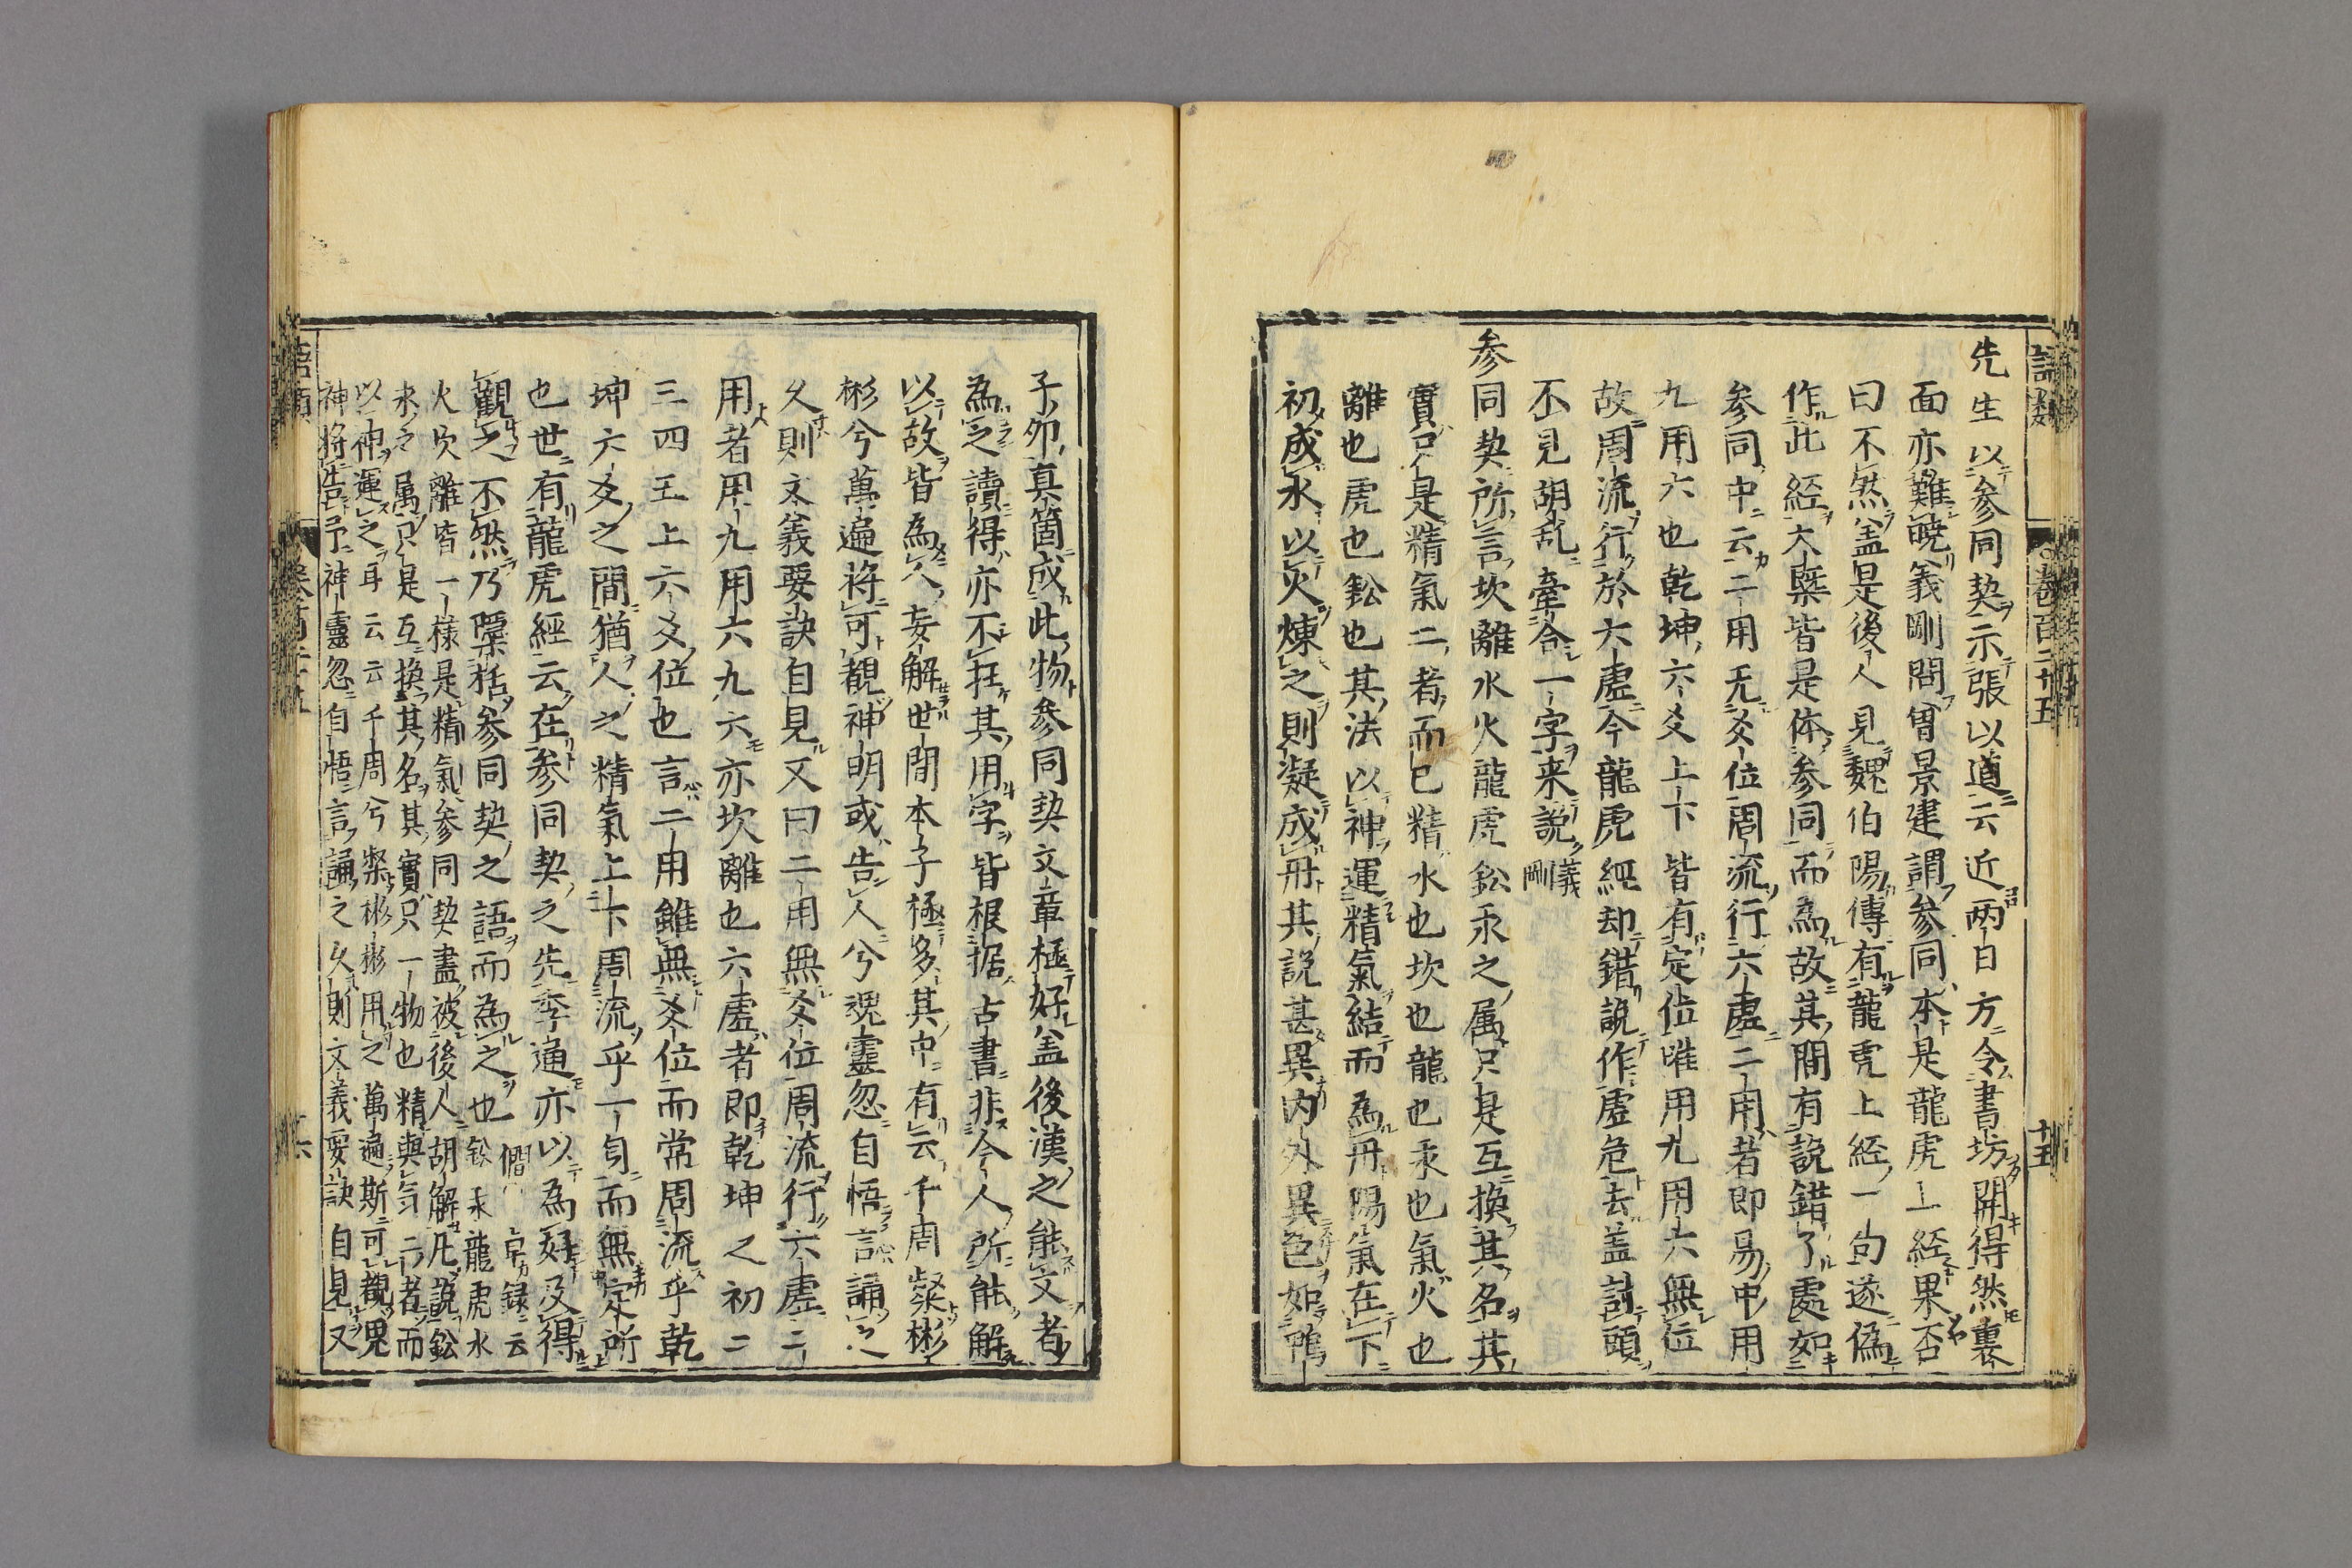 語類
卷百二十五
十五
先生以参同契示張以道云近両日方令書坊開得然裏
面亦難暁義剛問曽景建謂参同本是龍虎上經果否
曰不然盖是後人見魏伯陽傳有龍虎上經一句遂偽
作此經大槩皆是体参同而為故其間有説錯了處如
参同中云二用无爻位周流行六虚二用者即易中用
九用六也乾坤六爻上下皆有定位唯用九用六無位
故周流行於六虚今龍虎經却錯説作虚危去盖討頭
不見胡乱牽合一字来説義剛
参同契所言坎離水火龍虎鈆汞之属只是互換其名其
實只是精氣二者而已精水也坎也龍也汞也氣火也
離也虎也鈆也其法以神運精氣結而為丹陽氣在下
初成水以火煉之則凝成丹其説甚異内外異色如鴨
子卵真箇成此物参同契文章極好盖後漢之能文者
為之讀得亦不枉其用字皆根据古書非今人所能解
以故皆為人妄解世間本子極多其中有云千周粲彬
彬兮萬遍将可覩神明或告人兮魂靈忽自悟言誦之
久則文義要訣自見又曰二用無爻位周流行六虚二
用者用九用六九六亦坎離也六虚者即乾坤之初二
三四五上六爻位也言二用雖無爻位而常周流乎乾
坤六爻之間猶人之精氣上下周流乎一身而無定所
也世有龍虎經云在参同契之先季通亦以為好及得
觀之不然乃隱括参同契之語而為之也僩 卓録云鈆汞龍虎水
火坎離皆一様是精氣参同契盡被後人胡解凡説鈆
汞之属只是互換其名其實只一物也精與気二者而
以神運之耳云云千周兮粲彬彬用之萬遍斯可覩鬼
神将告予神靈忽自悟言誦之久則文義要訣自見又
語類
十六